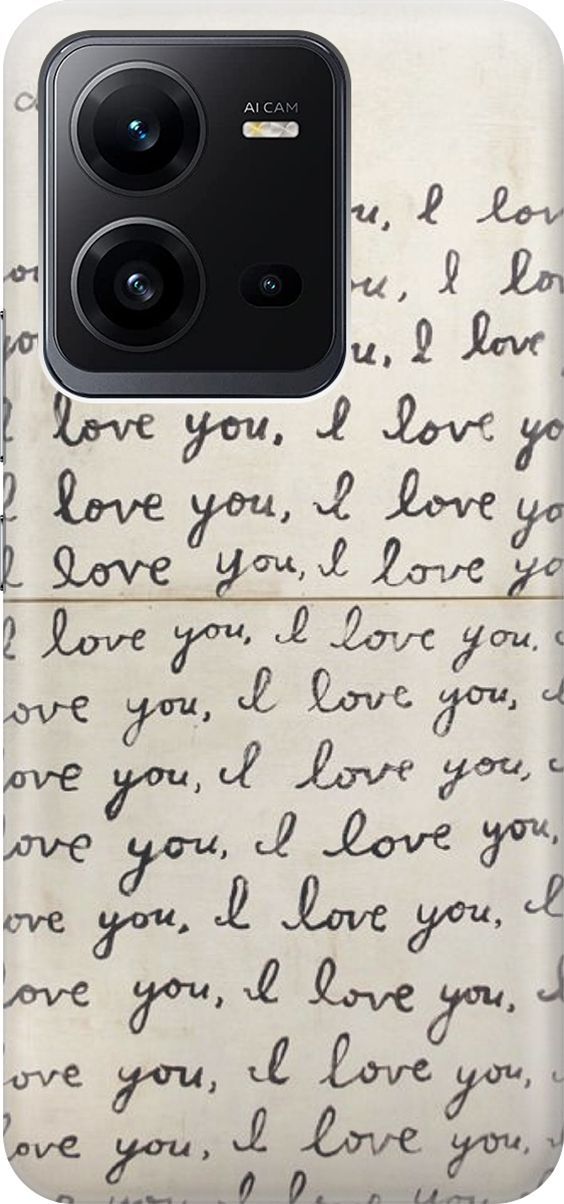 AI CAM
u, I lov
ou, I lo
u, I love
I love you, I love yo
I love you, I love yo
I love you, I love yo
I love you, I love you,
ove you, I love you, I
ove you, I love you,
ove you, I love you,
ove you, I love you, I
love you, I love you, I
ove you, I love you,
love you, I love you,